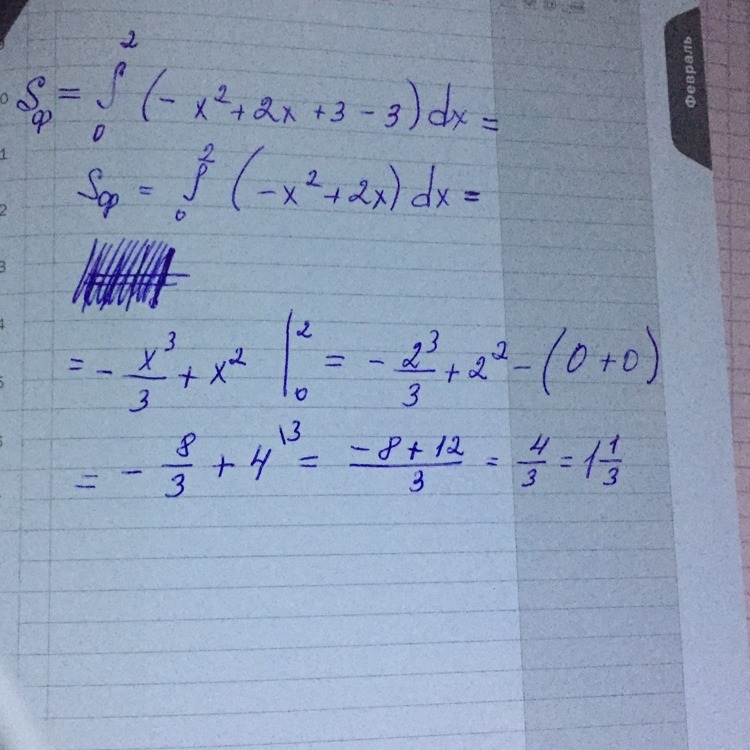 Февраль
Sф = ∫₀² (- x² + 2x + 3 - 3) dx =
Sф = ∫₀² (-x² + 2x) dx =
= - x³/3 + x² |₀² = - 2³/3 + 2² - (0 + 0)
= - 8/3 + 4\³ = (-8 + 12)/3 = 4/3 = 1 1/3